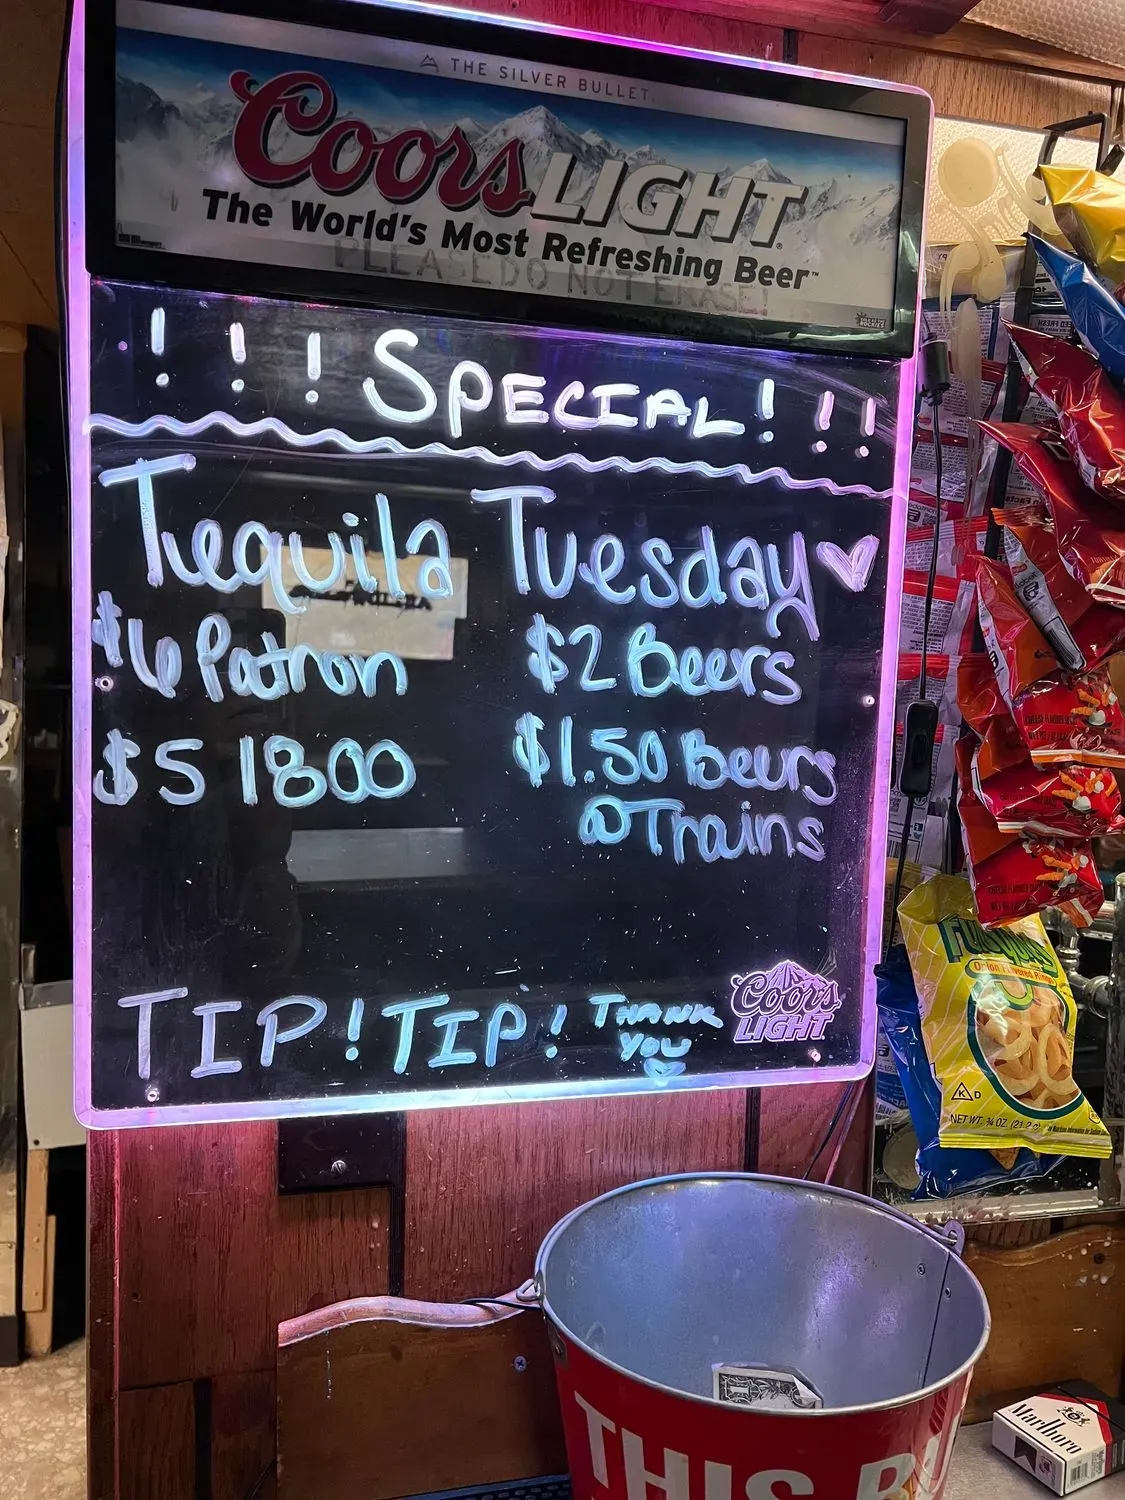 THE SILVER BULLET.
Coors LIGHT
The World's Most Refreshing Beer™
PLEASE DO NOT ERASE!
!!! SPECIAL!!!
Tequila Tuesday
$6 Patron
$5 1800
$2 Beers
$1.50 Beers
@Trains
TIP! TIP! THANK YOU
Coors
LIGHT
Funyuns
Onion Flavored Rings
K D
NET WT. ¾ OZ. (21.2 g)
THIS BU
Marlboro